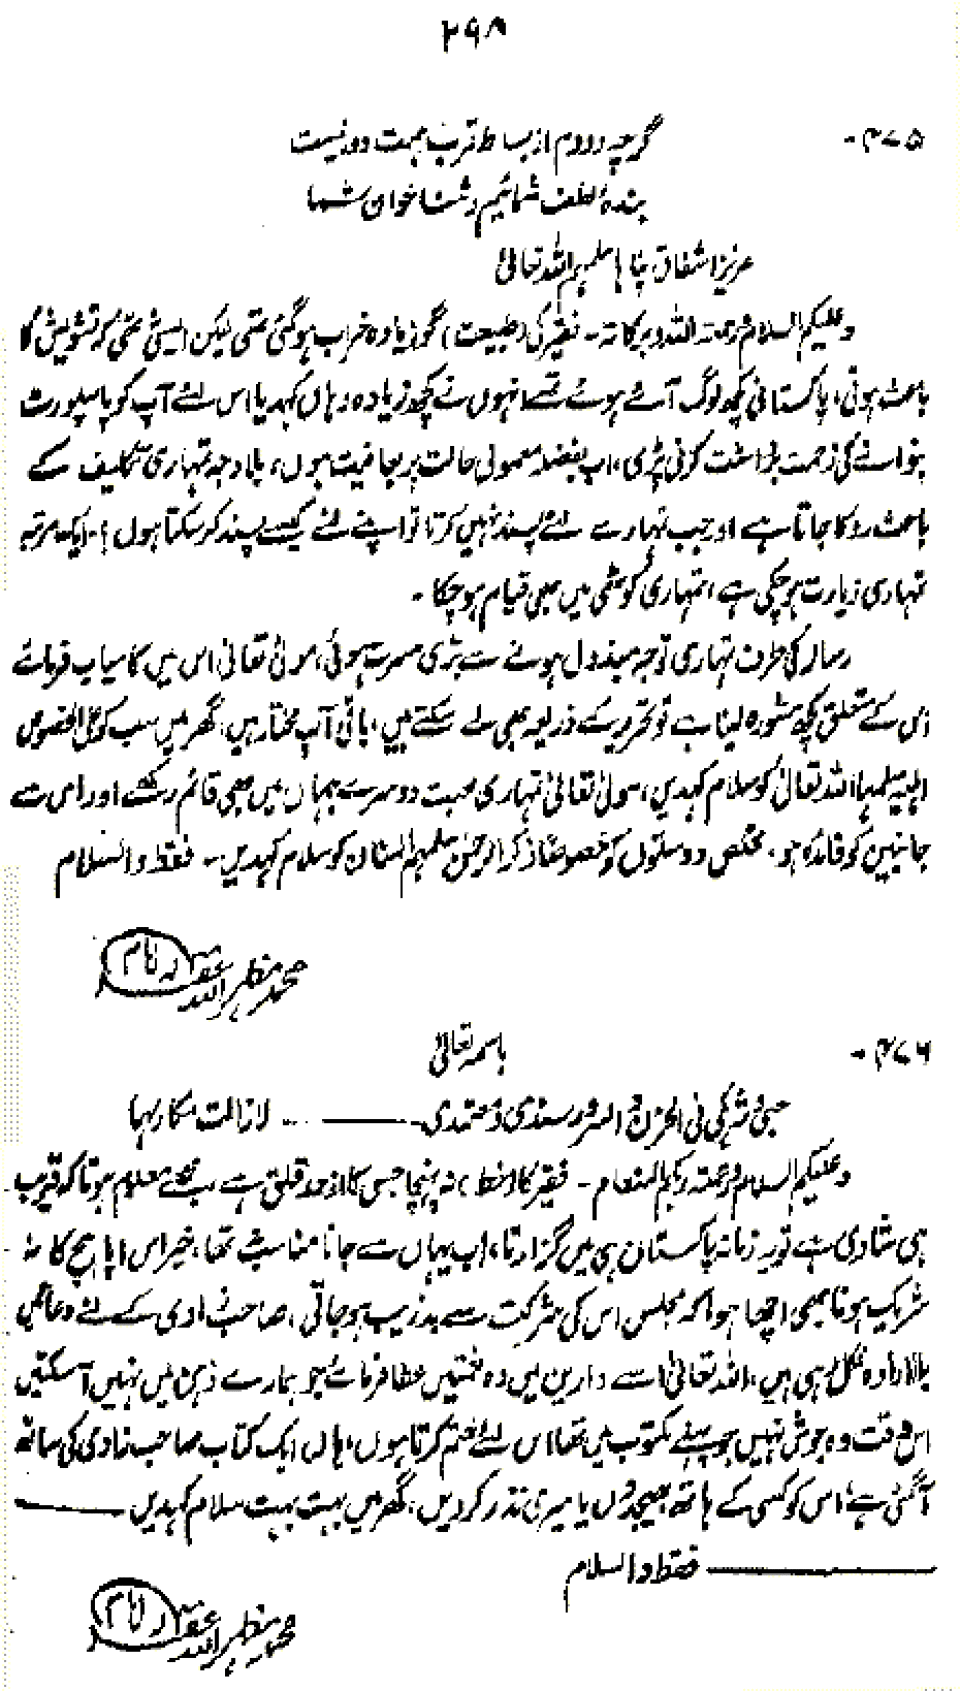 ۲۹۸
۴۷۵-
گرچہ دورم از بساط قرب ہمت دور نیست
بندۂ لطف شمائیم و ثنا خوان شما
عزیز اشفاق پناہا سلمہم اللہ تعالیٰ
وعلیکم السلام ورحمتہ اللہ وبرکاتہ۔ فقیر کی (طبیعت) گو زیادہ خراب ہوگئی تھی لیکن ایسی نہ تھی کہ تشویش کا
باعث ہوتی، پاکستانی کچھ لوگ آئے ہوئے تھے انہوں نے کچھ زیادہ وہاں کہدیا اس لئے آپ کو پاسپورٹ
بنوانے کی زحمت برداشت کرنی پڑی، اب بفضلہ معمولی حالت پر بعافیت ہوں، بلاوجہ تمہاری تکلیف کے
باعث روکا جاتا ہے اور جب تمہارے لئے پسند نہیں کرتا تو اپنے لئے کیسے پسند کر سکتا ہوں؟۔ ایک مرتبہ
تمہاری زیارت ہوچکی ہے، تمہاری کوٹھی میں بھی قیام ہو چکا۔
رسالہ کی طرف تمہاری توجہ مبذول ہونے سے بڑی مسرت ہوئی، مولیٰ تعالیٰ اس میں کامیاب فرمائے
اس کے متعلق کچھ مشورہ لینا ہے تو تحریر کے ذریعہ بھی لے سکتے ہیں، باقی آپ مختار ہیں، گھر میں سب کو علی الخصوص
اہلیہ سلمہا اللہ تعالیٰ کو سلام کہدیں، مولیٰ تعالیٰ تمہاری محبت دوسرے جہاں میں بھی قائم رکھے اور اس سے
جانبین کو فائدہ ہو، مختص دوستوں کو خصوصاً ذکر الرحمٰن سلمہم المنان کو سلام کہدیں۔ فقط والسلام
محمد مظہر اللہ غفرلہ امام
۴۷۶-
باسمہ تعالیٰ
محبی و شریکی فی الحزن و السرور سندی و معتمدی ——— لازالت مکارمہا
وعلیکم السلام ورحمتہ ربکم المنعام۔ فقیر کا (خط) نہ پہنچا جس کا از حد قلق ہے، مجھے معلوم ہوتا کہ قریب
ہی شادی ہے تو یہ زمانہ پاکستان ہی میں گزارتا، اب یہاں سے جانا مناسب نہ تھا، خیر اس اپاہج کا نہ
شریک ہونا بھی اچھا ہوا کہ مجلس اس کی شرکت سے بدزیب ہوجاتی، صاحبزادی کے لئے دعائیں
بلا ارادہ نکل رہی ہیں، اللہ تعالیٰ اسے دارین میں وہ نعمتیں عطا فرمائے جو ہمارے ذہن میں نہیں آسکتیں
اس وقت وہ جوش نہیں جو پہلے مکتوب میں تھا اس لئے ختم کرتا ہوں، ہاں ایک کتاب صاحبزادی کی ساتھ
آگئی ہے، اس کو کسی کے ہاتھ بھیجدوں یا میری نذر کردیں، گھر میں بہت بہت سلام کہدیں ———
——— فقط والسلام
محمد مظہر اللہ غفرلہ امام